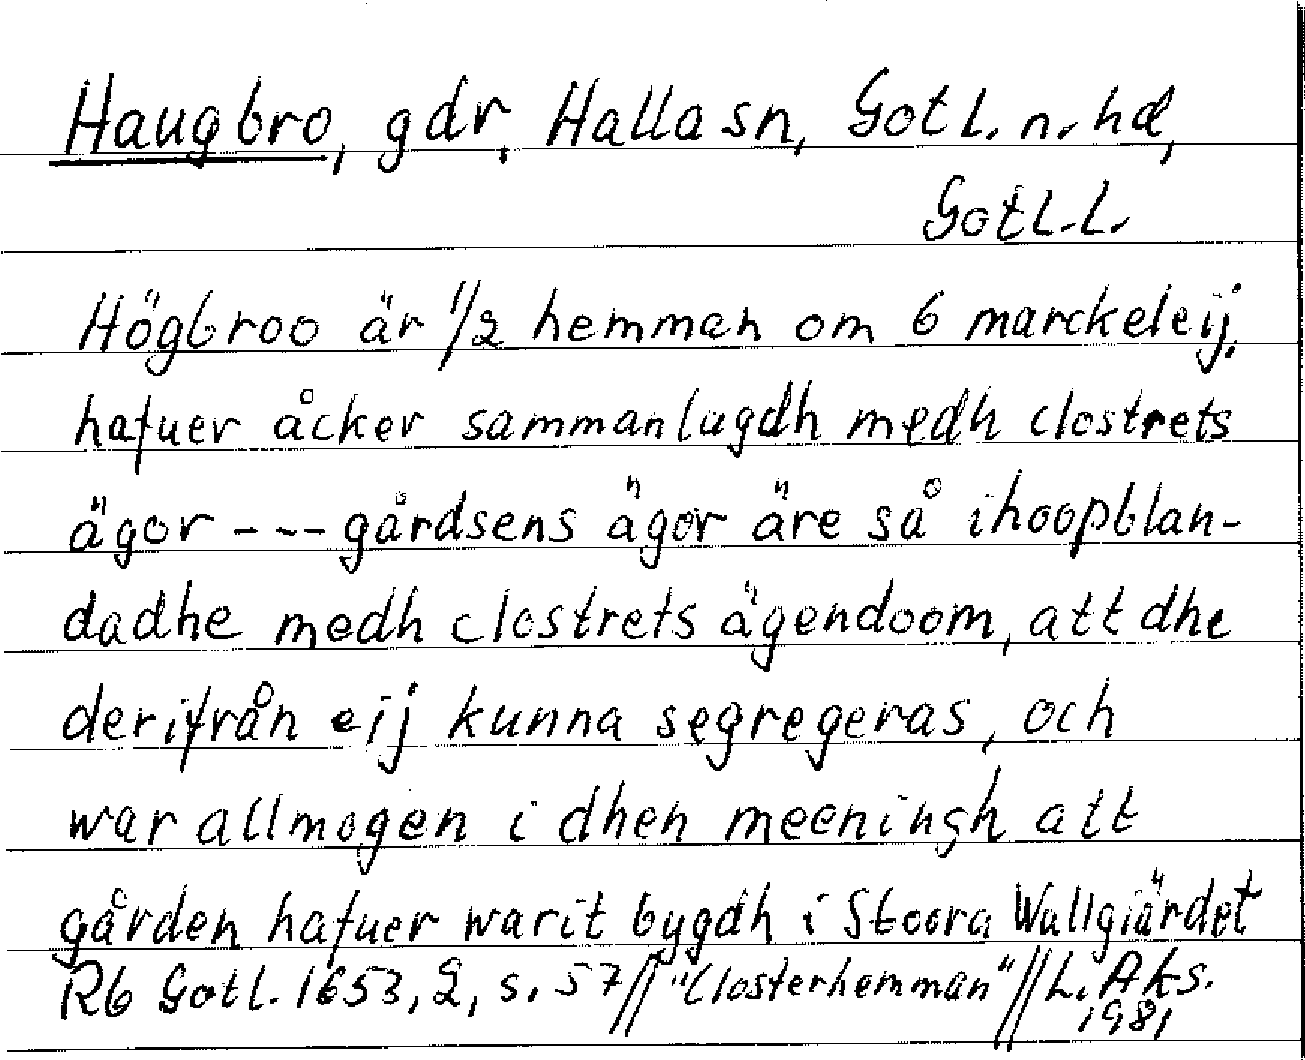 Haugbro, gdr, Halla sn, Gotl. n. hd,
Gotl. L.
Högbroo är 1/2 hemman om 6 marckeleij,
hafuer åcker sammanlagdh medh clostrets
ägor --- gårdsens ägor äre så ihoopblan-
dadhe medh clostrets ägendoom, att dhe
derifrån eij kunna segregeras, och
war allmogen i dhen meeningh att
gården hafuer warit bygdh i Stoora Wallgiärdet
Rb Gotl. 1653, 2, s. 57 // "Closterhemman" // L. Aks.
1981